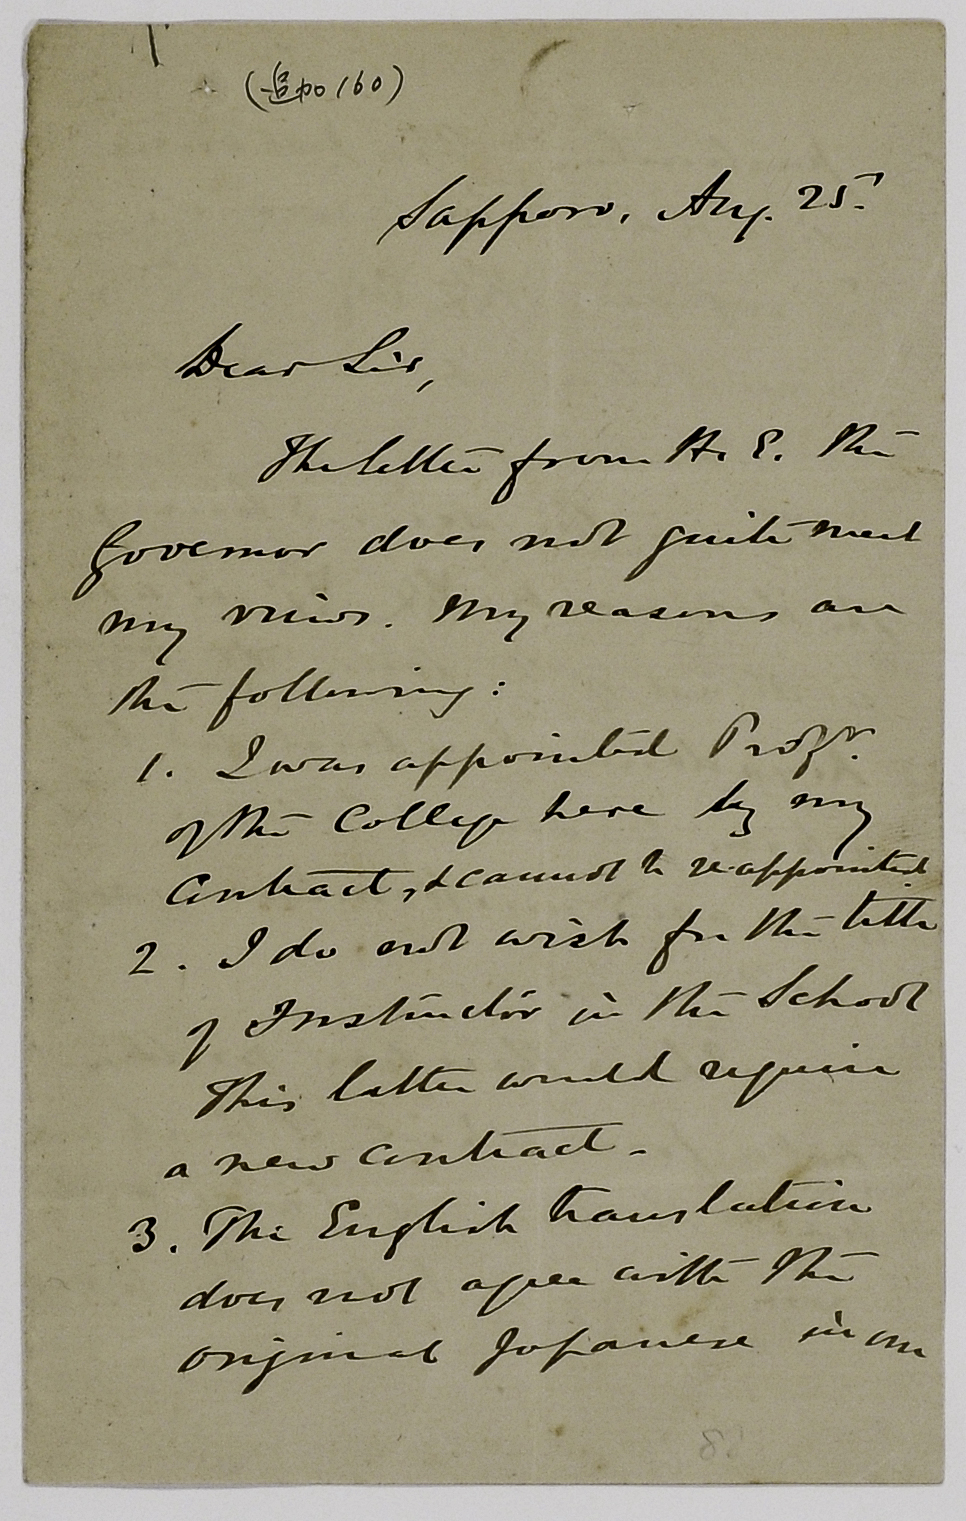 (追加160)
Sapporo, Aug. 25.
Dear Sir,
The letter from H. E. the
Governor does not quite meet
my views. My reasons are
the following:
1. I was appointed Profr.
of the College here by my
Contract, & cannot be re-appointed
2. I do not wish for the title
of Instructor in the School
This latter would require
a new contract.
3. The English translation
does not agree with the
original Japanese in one